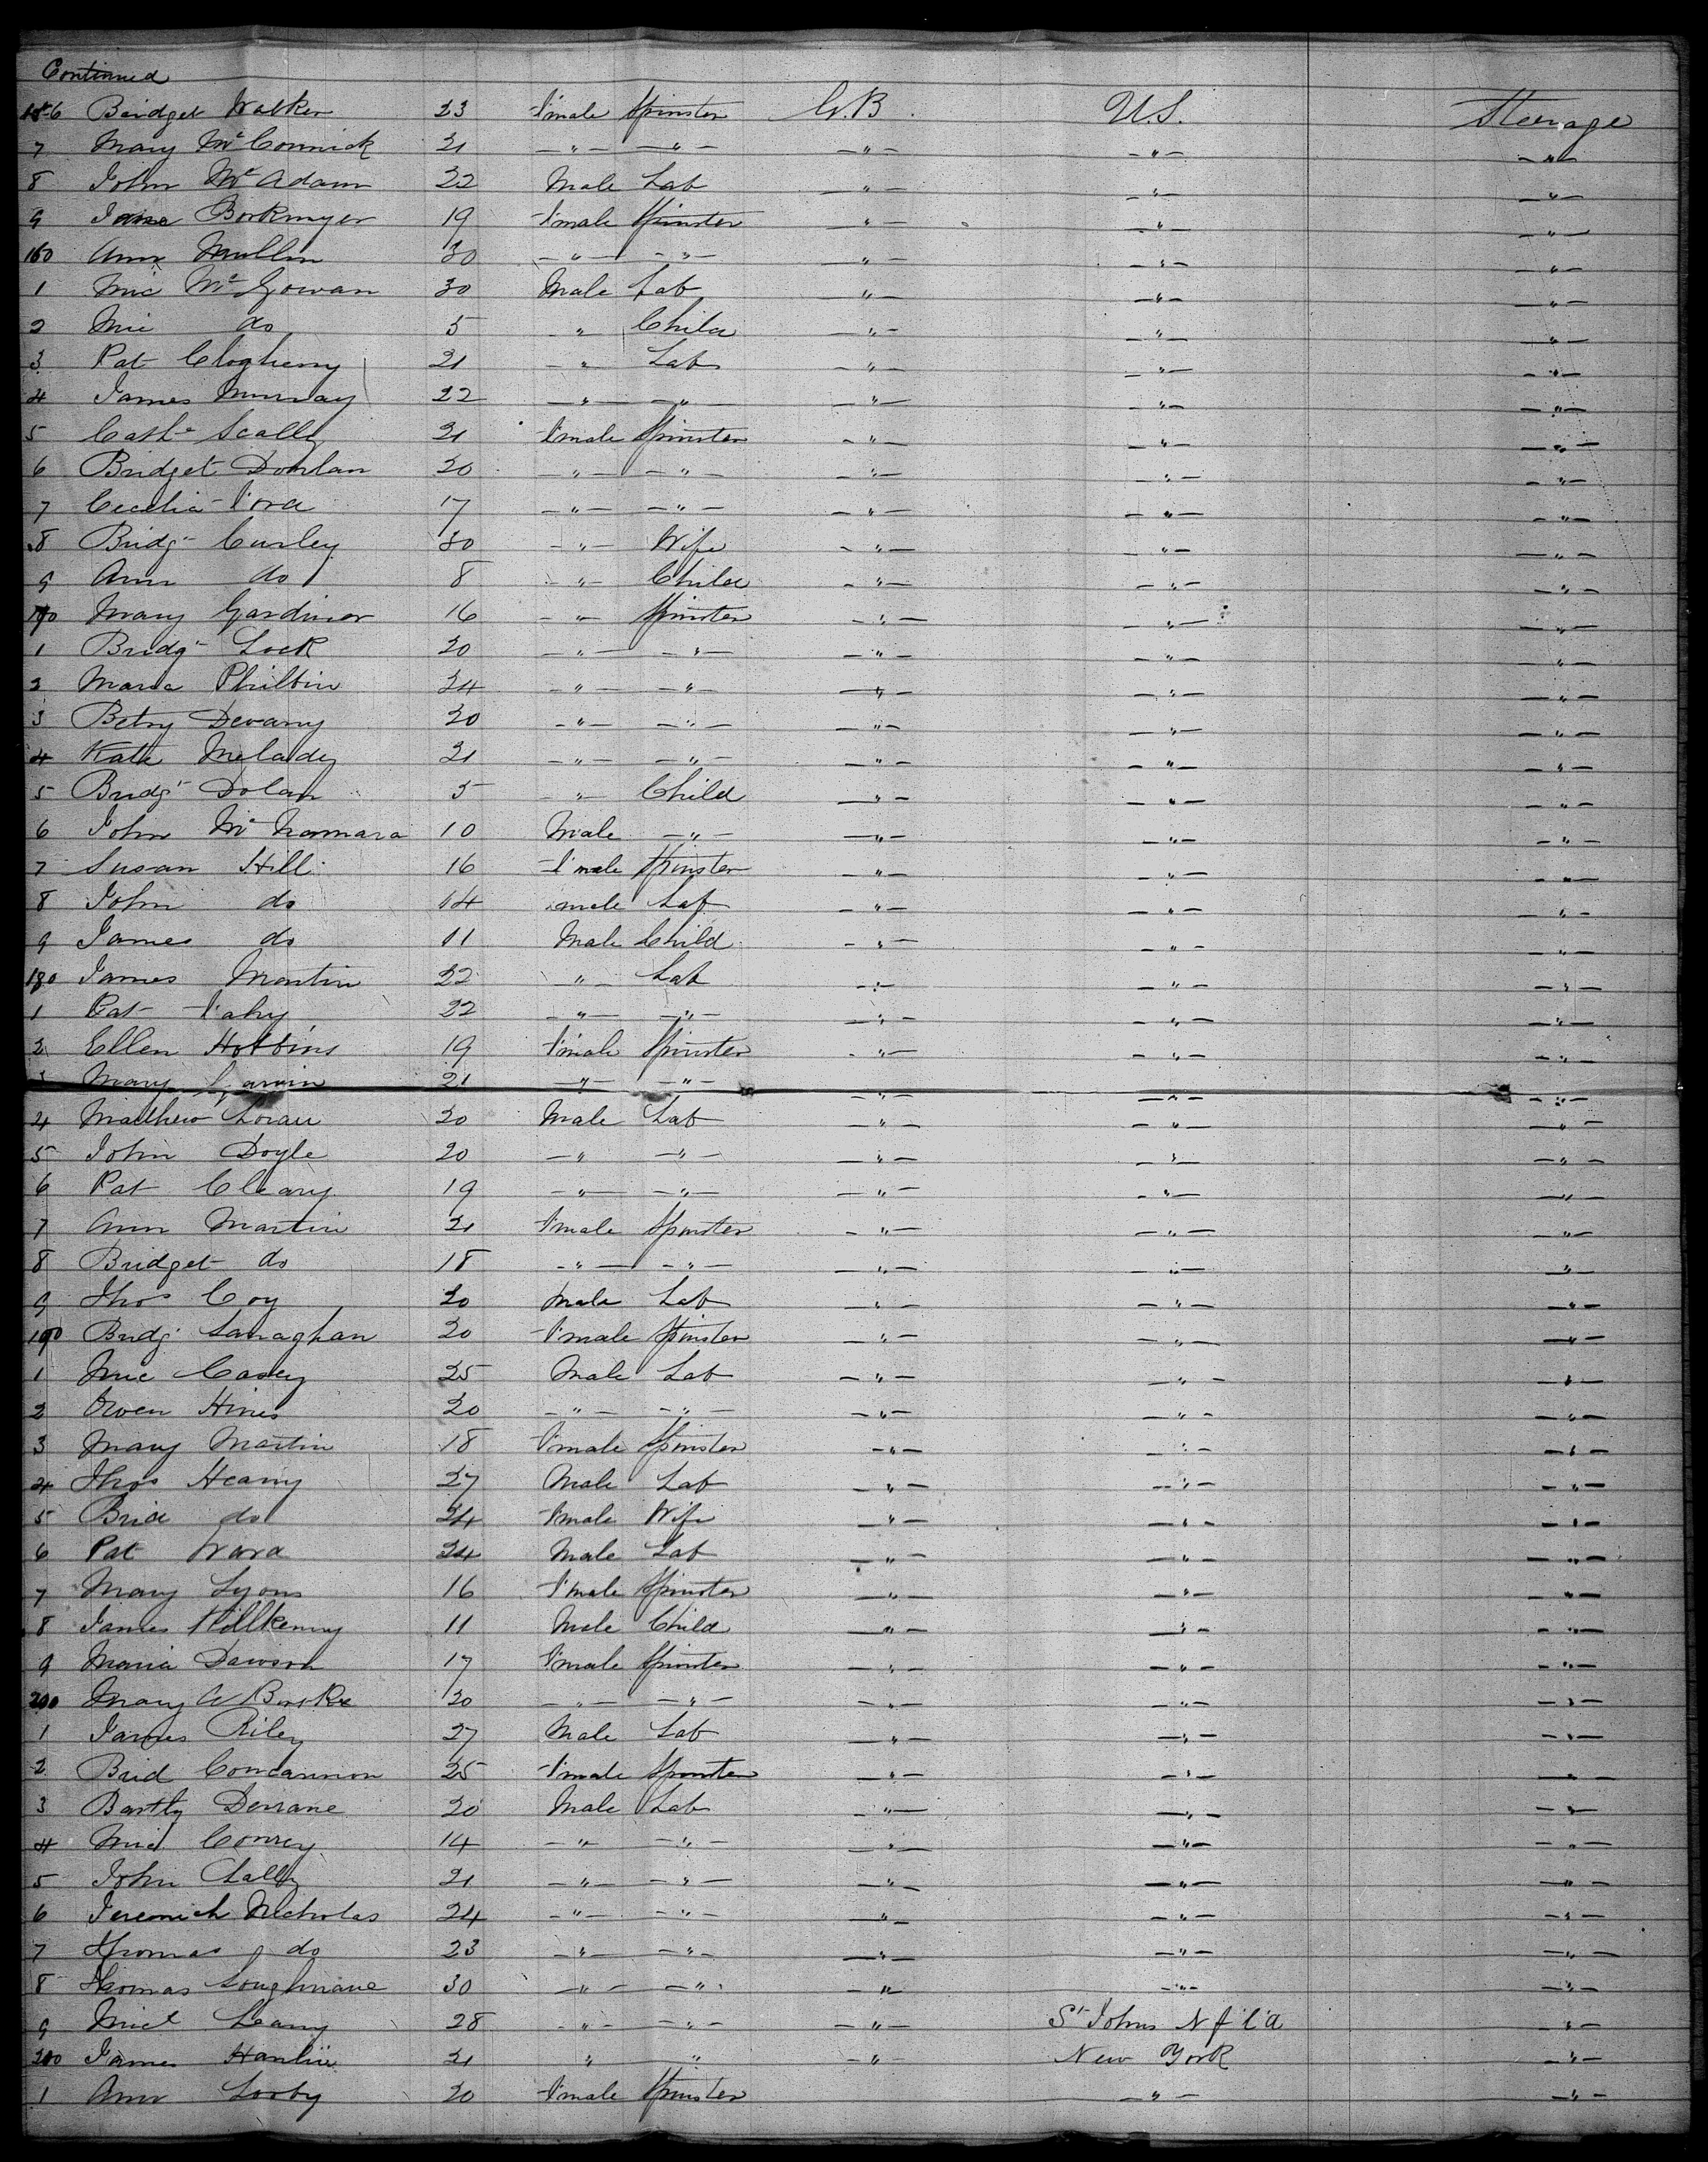 Continued
156 Bridget Walker 23 Fmale Spinster G.B. U.S. Steerage
7 Mary McCormick 21 — " — — " — — " — — " — — " —
8 John McAdam 22 Male Lab — " — — " — — " —
9 Jane Borkmyer 19 Fmale Spinster — " — — " — — " —
160 Ann Mullin 30 — " — — " — — " — — " — — " —
1 Mic McGowan 30 Male Lab — " — — " — — " —
2 Mic do 5 " Child — " — — " — — " —
3 Pat Clogherry 21 — " Lab — " — — " — — " —
4 James Murray 22 — " — — " — — " — — " — — " —
5 Cathe Scally 21 Fmale Spinster — " — — " — — " —
6 Bridget Donlan 20 — " — — " — — " — — " — — " —
7 Cecelia Ford 17 — " — — " — — " — — " — — " —
8 Bridg Curley 30 — " — Wife — " — — " — — " —
9 Ann do 8 — " — Child — " — — " — — " —
170 Mary Gardiner 16 — " — Spinster — " — — " — — " —
1 Bridg Lock 20 — " — — " — — " — — " — — " —
2 Maria Philbin 24 — " — — " — — " — — " — — " —
3 Betsy Devany 20 — " — — " — — " — — " — — " —
4 Kate Melady 21 — " — — " — — " — — " — — " —
5 Bridg Dolan 5 — " Child — " — — " — — " —
6 John McNamara 10 Male — " — — " — — " — — " —
7 Susan Hill 16 Fmale Spinster — " — — " — — " —
8 John do 14 male Lab — " — — " — — " —
9 James do 11 Male Child — " — — " — — " —
180 James Martin 22 — " — Lab — " — — " — — " —
1 Pat Fahy 22 — " — — " — — " — — " — — " —
2 Ellen Hobbins 19 Fmale Spinster — " — — " — — " —
3 Mary Garvin 21 — " — — " — — " — — " — — " —
4 Matthew Horan 20 Male Lab — " — — " — — " —
5 John Doyle 20 — " — " — — " — — " — — " —
6 Pat Cleary 19 — " — — " — — " — — " — — " —
7 Ann Martin 21 Fmale Spinster — " — — " — — " —
8 Bridget do 18 — " — — " — — " — — " — — " —
9 Thos Coy 20 Male Lab — " — — " — — " —
190 Bridg Lanaghan 20 Fmale Spinster — " — — " — — " —
1 Mic Casey 25 Male Lab — " — — " — — " —
2 Owen Hines 20 — " — — " — — " — — " — — " —
3 Mary Martin 18 Fmale Spinster — " — — " — — " —
4 Thos Heany 27 Male Lab — " — — " — — " —
5 Brid do 24 Fmale Wife — " — — " — — " —
6 Pat Ward 24 Male Lab — " — — " — — " —
7 Mary Lyons 16 Fmale Spinster — " — — " — — " —
8 James Killkenny 11 Male Child — " — — " — — " —
9 Maria Dawson 17 Fmale Spinster — " — — " — — " —
200 Mary A Burke 20 — " — — " — — " — — " — — " —
1 James Riley 27 Male Lab — " — — " — — " —
2 Brid Concannon 25 Fmale Spinster — " — — " — — " —
3 Bartly Derrane 20 Male Lab — " — — " — — " —
4 Mic Conrey 14 — " — — " — — " — — " — — " —
5 John Lally 21 — " — — " — — " — — " — — " —
6 Jeremiah Nicholas 24 — " — — " — — " — — " — — " —
7 Thomas do 23 — " — — " — — " — — " — — " —
8 Thomas Loughnane 30 — " — — " — " — — " — — " —
9 Micl Leany 28 — " — — " — — " — St Johns Nfld — " —
200 James Hanlin 21 " " — " — New York — " —
1 Ann Looby 20 Fmale Spinster — " — — " —